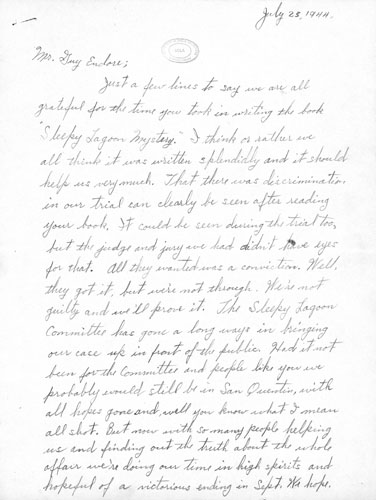 July 25, 1944.
Mr. Guy Endore;
Just a few lines to say we are all
grateful for the time you took in writing the book
"Sleepy Lagoon Mystery." I think or rather we
all think it was written splendidly and it should
help us very much. That there was discrimination
in our trial can clearly be seen after reading
your book. It could be seen during the trial too,
but the judge and jury we had didn't have eyes
for that. All they wanted was a conviction. Well,
they got it, but we're not through. We're not
guilty and we'll prove it. The Sleepy Lagoon
Committee has gone a long ways in bringing
our case up in front of the public. Had it not
been for the Committee and people like you we
probably would still be in San Quentin, with
all hopes gone and, well you know what I mean
all shot. But now with so many people helping
us and finding out the truth about the whole
affair we're doing our time in high spirits and
hopeful of a victorious ending in Sept. We hope.